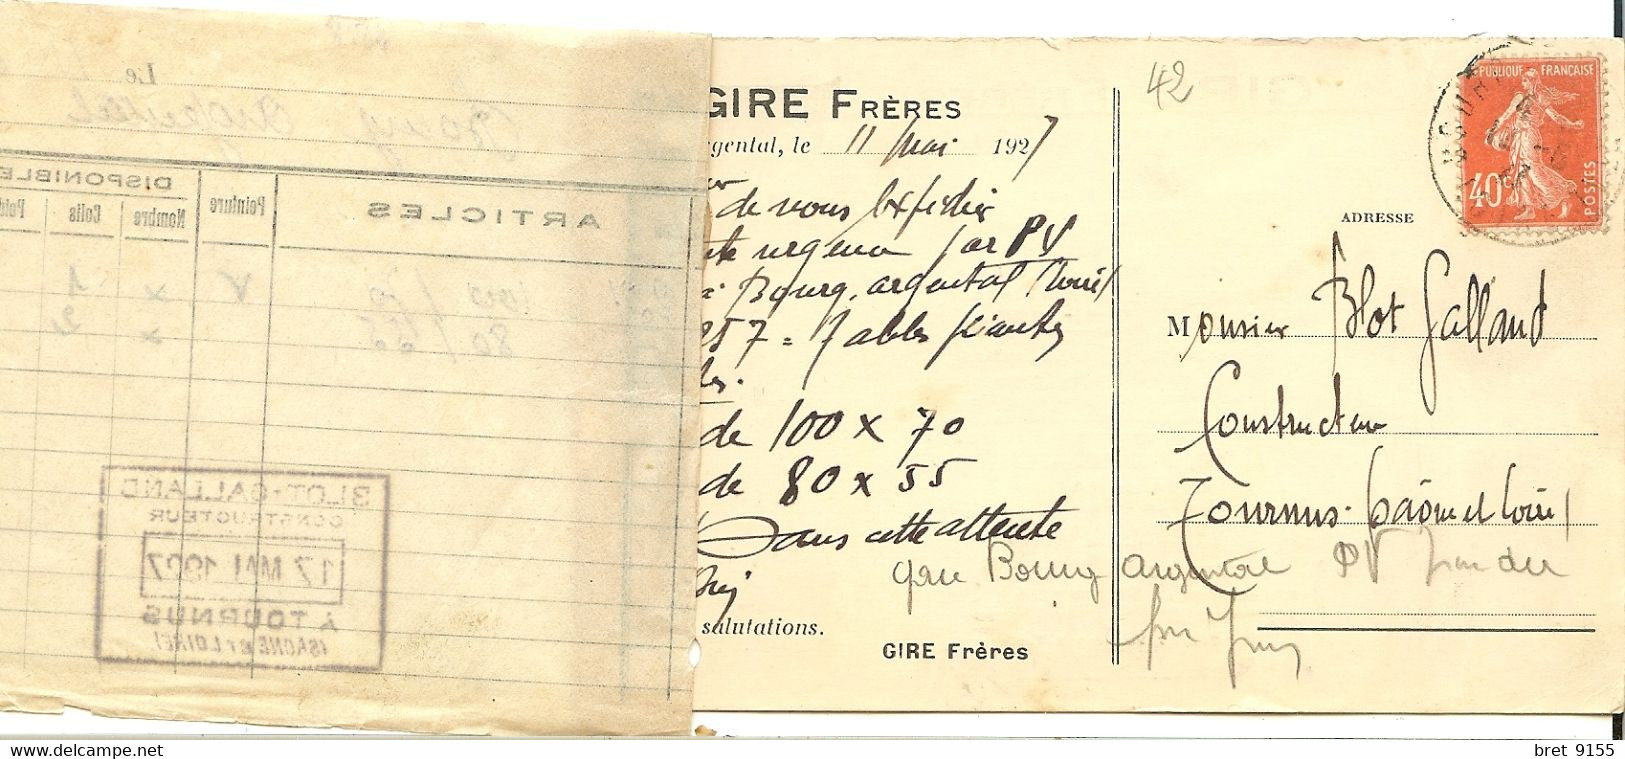 Le
Bourg Argental
DISPONIBLE
ARTICLES
Peinture
Nombre
Colis
Poids
100 / 70
V
x
1
80 / 55
x
2
BLOT-GALLAND
CONSTRUCTEUR
17 MAI 1927
A TOURNUS
(SAONE ET LOIRE)
GIRE FRÈRES
rgental, le 11 Mai 1927
de vous Expédier
urgence par PV
Bourg-argental (Loire)
257 = Tables
de 100 x 70
de 80 x 55
Dans cette attente
salutations.
GIRE Frères
42
RÉPUBLIQUE FRANÇAISE
40c
POSTES
ADRESSE
Monsieur Blot Galland
Constructeur
Tournus (Saône et Loire)
gare Bourg Argental PV
bret 9155